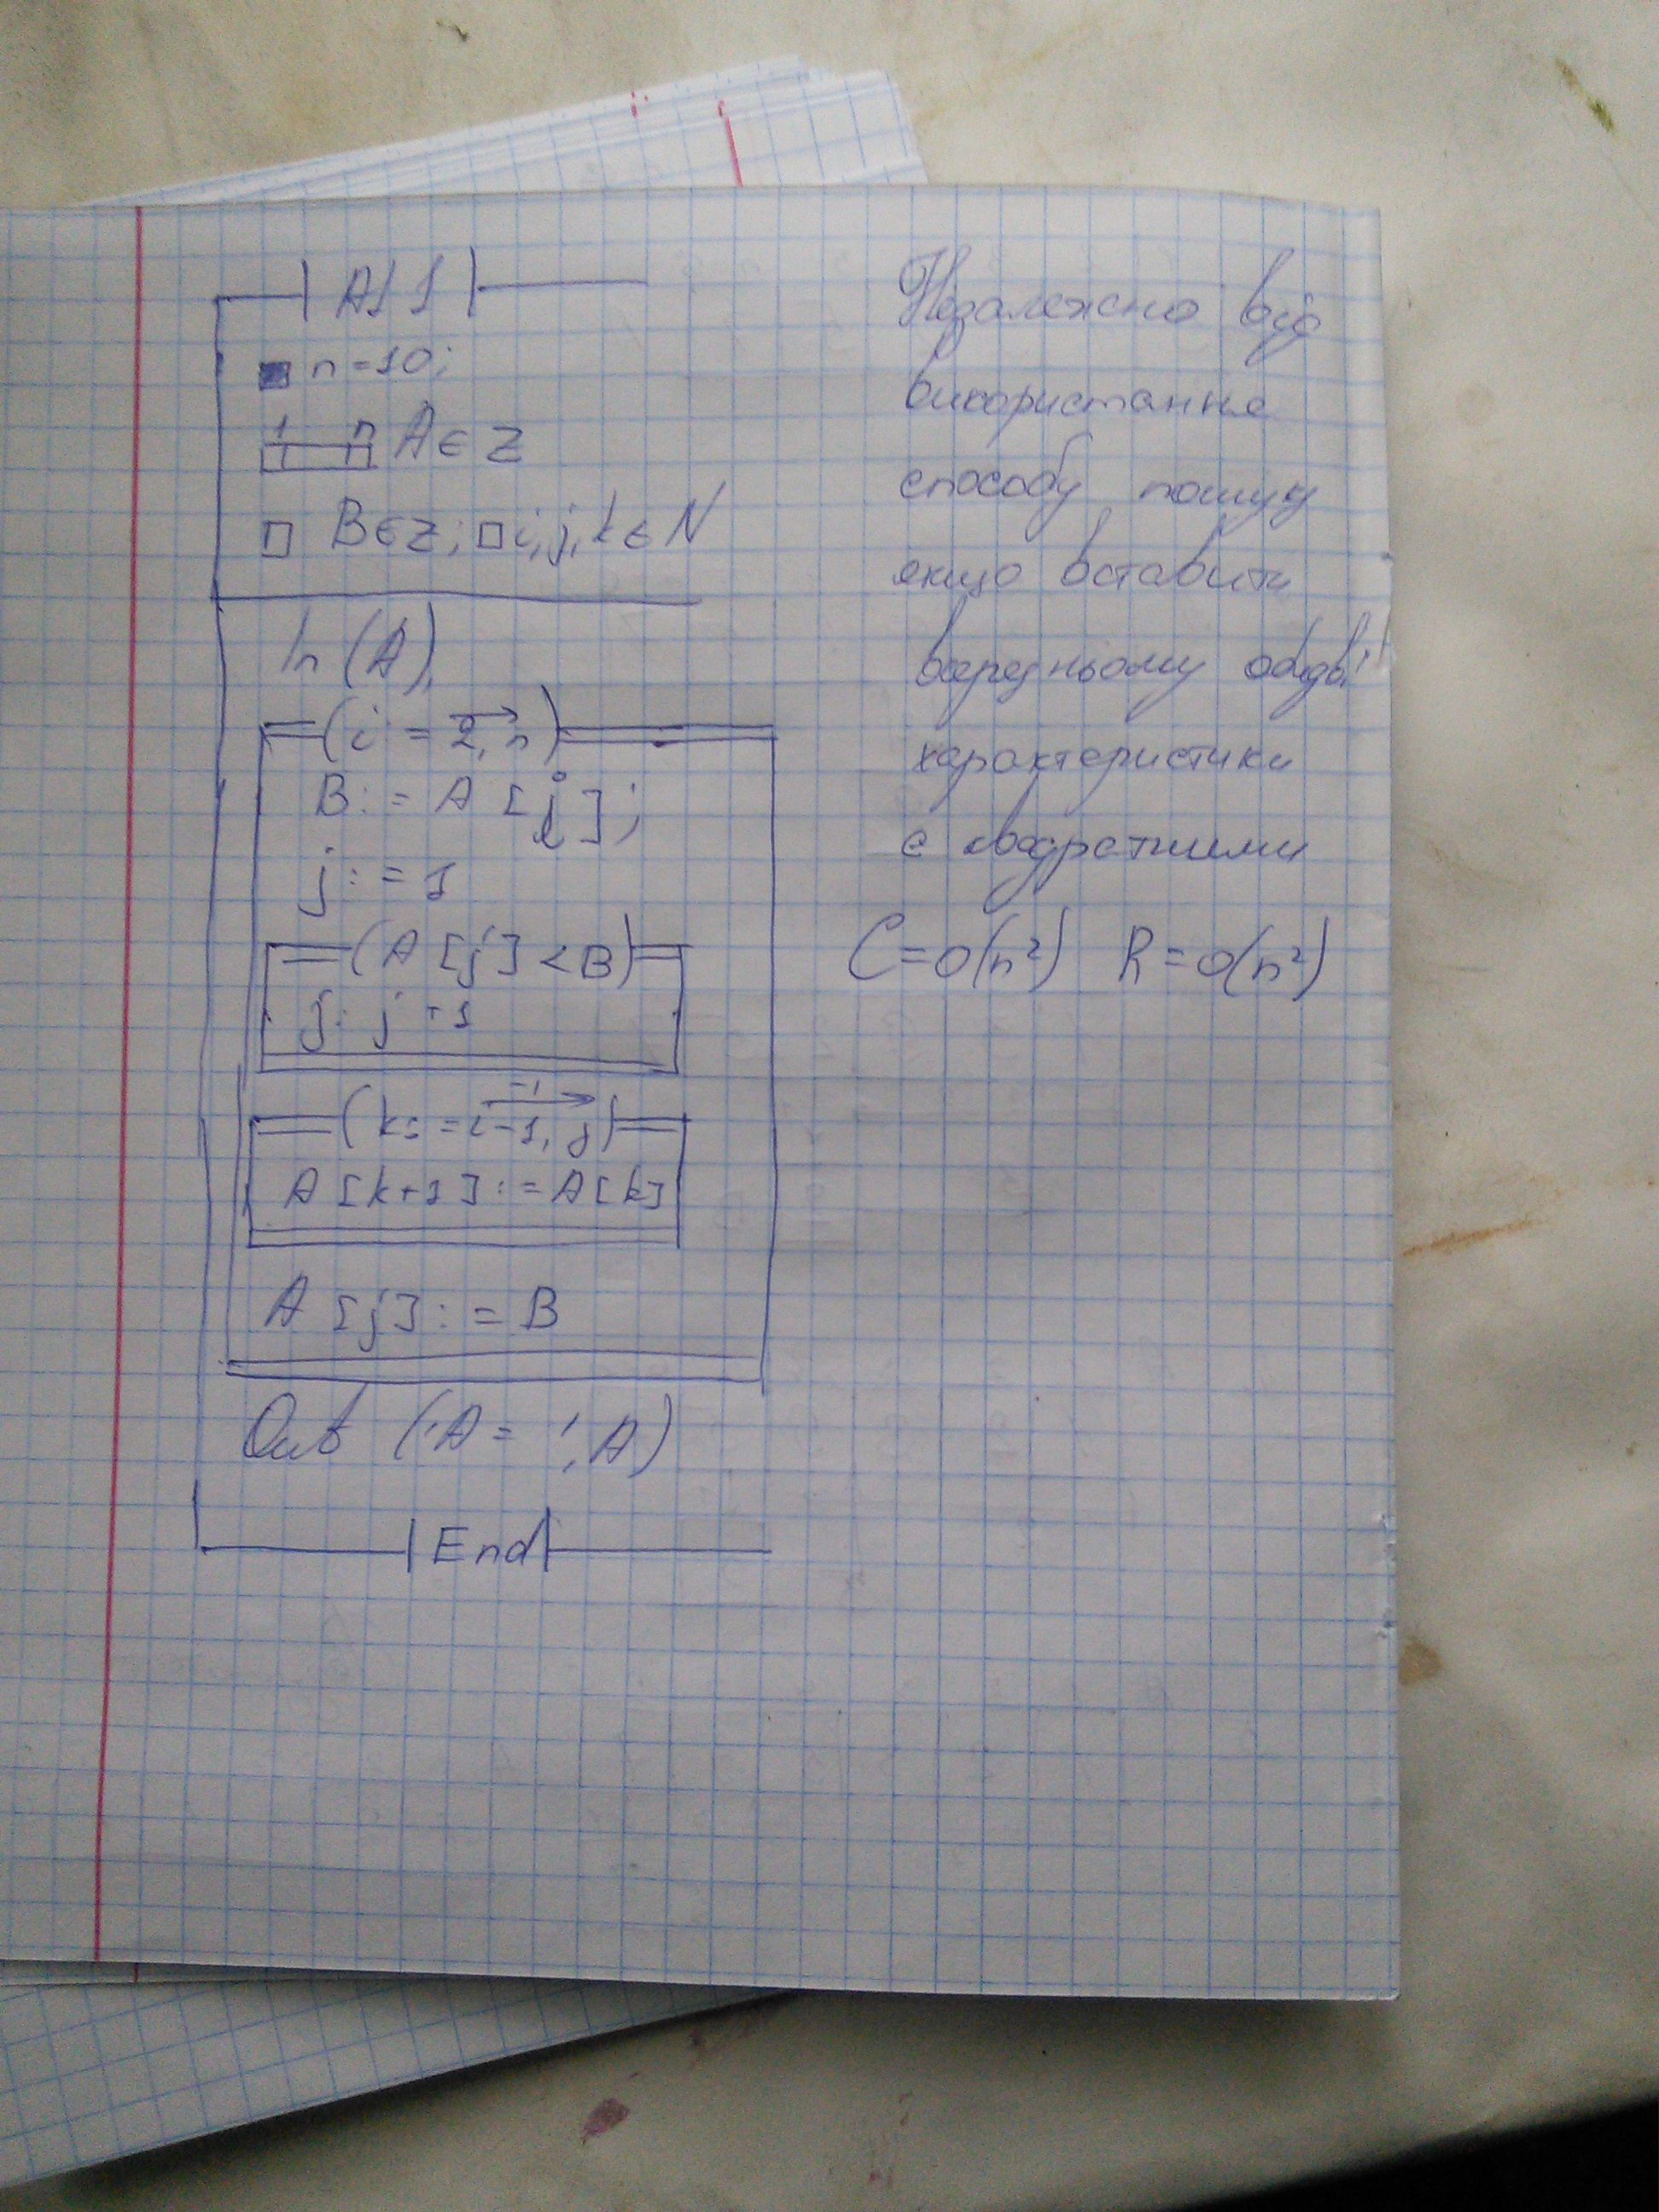 A11
n=10;
1 n A∈Z
B∈Z; i,j,k∈N
In(A);
(i = 2,n)
B:=A[i];
j:=1
(A[j]<B)
j: j+1
-1
(k:=i-1,j)
A[k+1]:=A[k]
A[j]:=B
Out ('A= ', A)
End
Незалежно від
використання
способу пошуку
якщо вставити
всередньому обидві
характеристики
є квадратними
C=O(n²) R=O(n²)